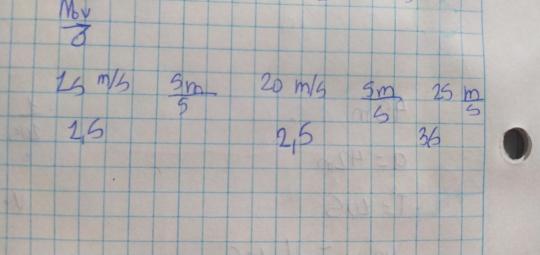 Mov
3
15 m/s 5m/s 20 m/s 5m/s 25 m/s
1,5 2,5 35